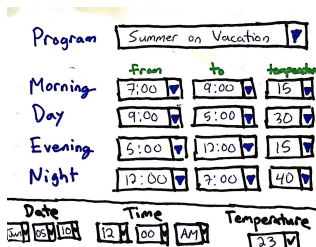 Program Summer on Vacation
from to temperature
Morning 7:00 9:00 15
Day 9:00 5:00 30
Evening 5:00 12:00 15
Night 12:00 7:00 40
Date Time Temperature
Jun 05 10 12 00 AM 23